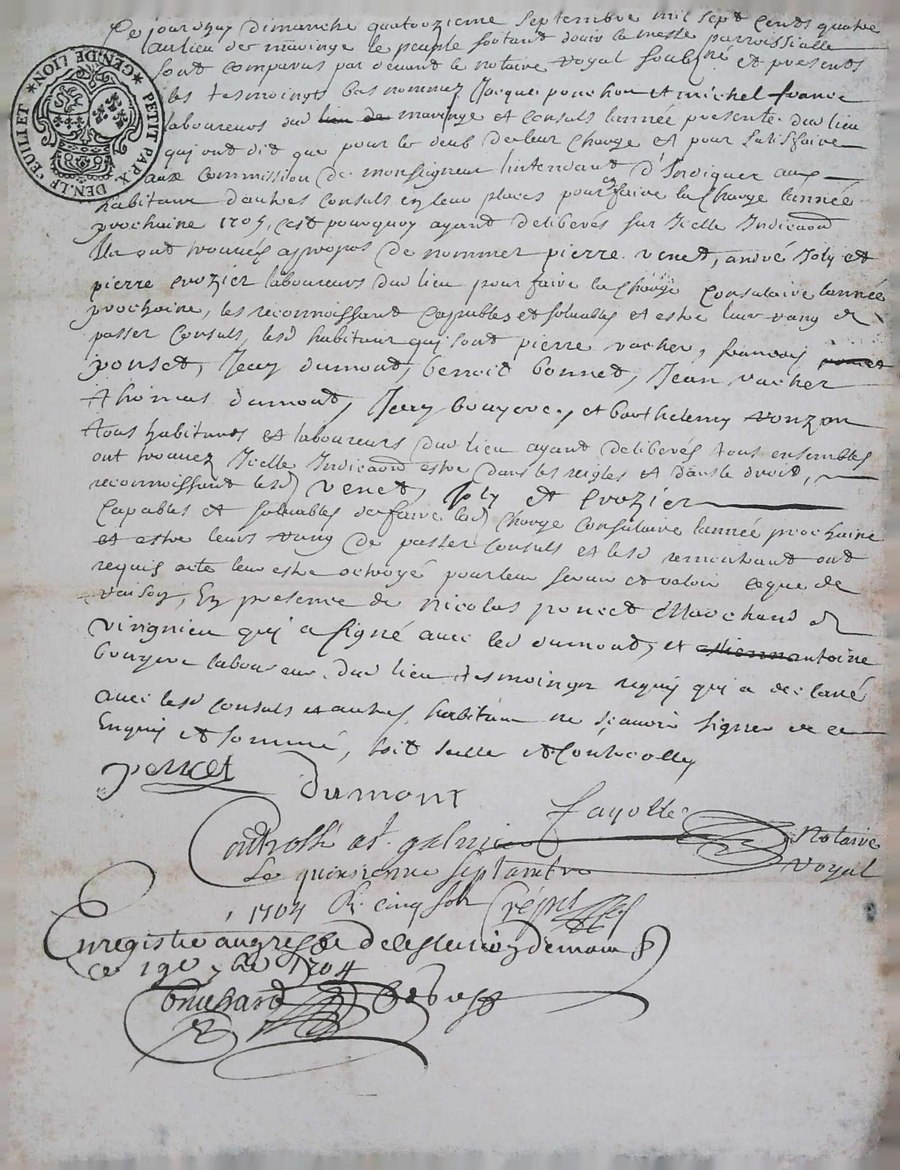 Ce jourdhuy dimanche quatorzieme septembre mil sept cents quatre
au lieu de maringe le peuple sortant douir la messe parroissialle
sont comparus par devant le notaire royal soubzné et presents
les tesmoingts bas nommez Jacques ponchon et michel france
laboureurs du lieu de maringe et consuls lannée presente du lieu
qui ont dit que pour le deub de leur charge et pour satisfaire
aux commission de monseigneur lintendant d'Indiquer aux
habitans dautres consuls en leur places pour en faire la charge lannée
prochaine 1705, cest pourquoy ayant deliberés sur Icelle Indicaon
Ils ont trouvés apropos de nommer pierre venet, andré Joly et
pierre crozier laboureurs dud lieu pour faire la charge consulaire lannée
prochaine, les reconnoissant capables et soluables et estre leur rang de
passer consuls, lesd habitans qui sont pierre vacher, francois poncet
ponset, Jean dumont, benoit bonnet, Jean vacher
thomas dumont, Jean bouyere, et barthelemy ronzon
tous habitants et laboureurs dud lieu ayant deliberés tous ensembles
ont trouvez Icelle Indicaon estre dans les reigles et dans le droit,
reconnoissant lesd venet, Joly et crozier
capables et soluables de faire lad charge consulaire lannée prochaine
et estre leurs rang de passer consuls et lesd remontrant ont
requis acte leur estre octroyé pour leur servir et valoir ceque de
raison, En presence de nicolas poncet Marchand de
virignieu qui a signé avec led dumont, et estienne antoine
bouyere laboureur dud lieu tesmoingts requis qui a declaré
avec lesd consuls et autres habitans ne sçavoir signer de ce
Enquis et sommé, soit scellé et controllé
poncet
dumont
fayolle
Notaire
royal
Controllé a st galmier
Le quinzienme septambre
1704 R. cinq sols
Enregistré au greffe de
ce 19e 7bre 1704
GEN. DE LION ★ PETIT PAP. X. DEN. LE FEUILLET ★